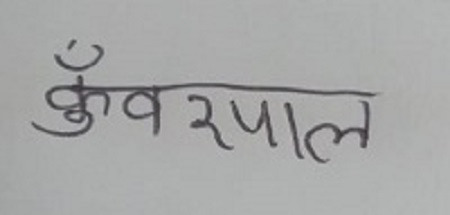 कुँवरपाल